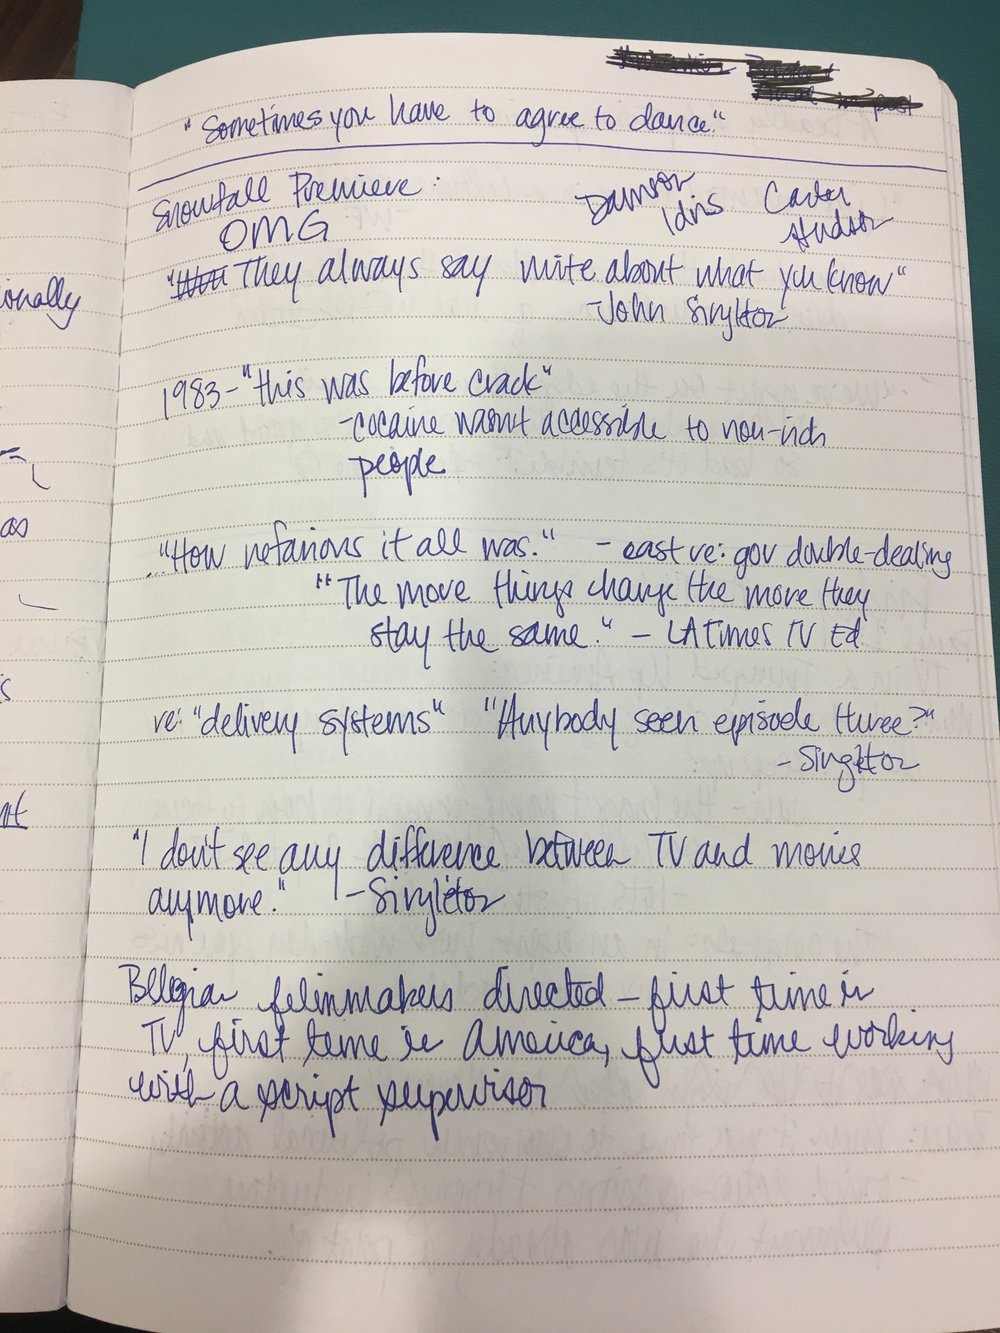 "Sometimes you have to agree to dance."
Snowfall Premiere:
OMG
Damson
Idris
Carter
Hudson
"They always say write about what you know"
-John Singleton
1983-"this was before crack"
-cocaine wasn't accessible to non-rich
people
"How nefarious it all was." - cast re: gov double-dealing
"The more things change the more they
stay the same." - LA Times TV Ed
re: "delivery systems" "Anybody seen episode three?"
- Singleton
"I don't see any difference between TV and movies
anymore." -Singleton
Belgian filmmakers directed - first time in
TV, first time in America, first time working
with a script supervisor
onally
as
s
nt